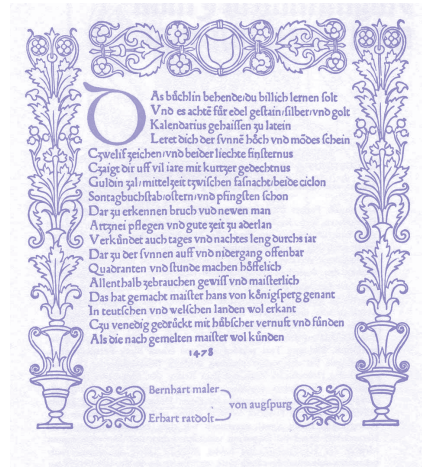 DAs bůchlin behende/du billich lernen solt
Vnd es achtē für edel gestain/silber/vnd golt
Kalendarius gehaissen zu latein
Leret dich der sunnē hôch vnd môdes schein
Czwelif zeichen/vnd beider liechte finsternus
Czaigt dir uff vil iare mit kurtzer gedechtnus
Guldin zal/mittelzeit tzwischen fasnacht/beide ciclon
Sontagbuchstab/ostern/vnd pfingsten schon
Dar zu erkennen bruch vnd newen man
Artznei pflegen vnd gute zeit zu aderlan
Verkündet auch tages vnd nachtes leng durchs iar
Dar zu der sunnen auff vnd nidergang offenbar
Quadranten vnd stunde machen höffelich
Allenthalb zebrauchen gewiss vnd maisterlich
Das hat gemacht maister hans von königsperg genant
In teutschen vnd welschen landen wol erkant
Czu venedig gedrückt mit hübscher vernuft vnd fünden
Als die nach gemelten maister wol künden
1478
Bernhart maler
von augspurg
Erhart ratdolt